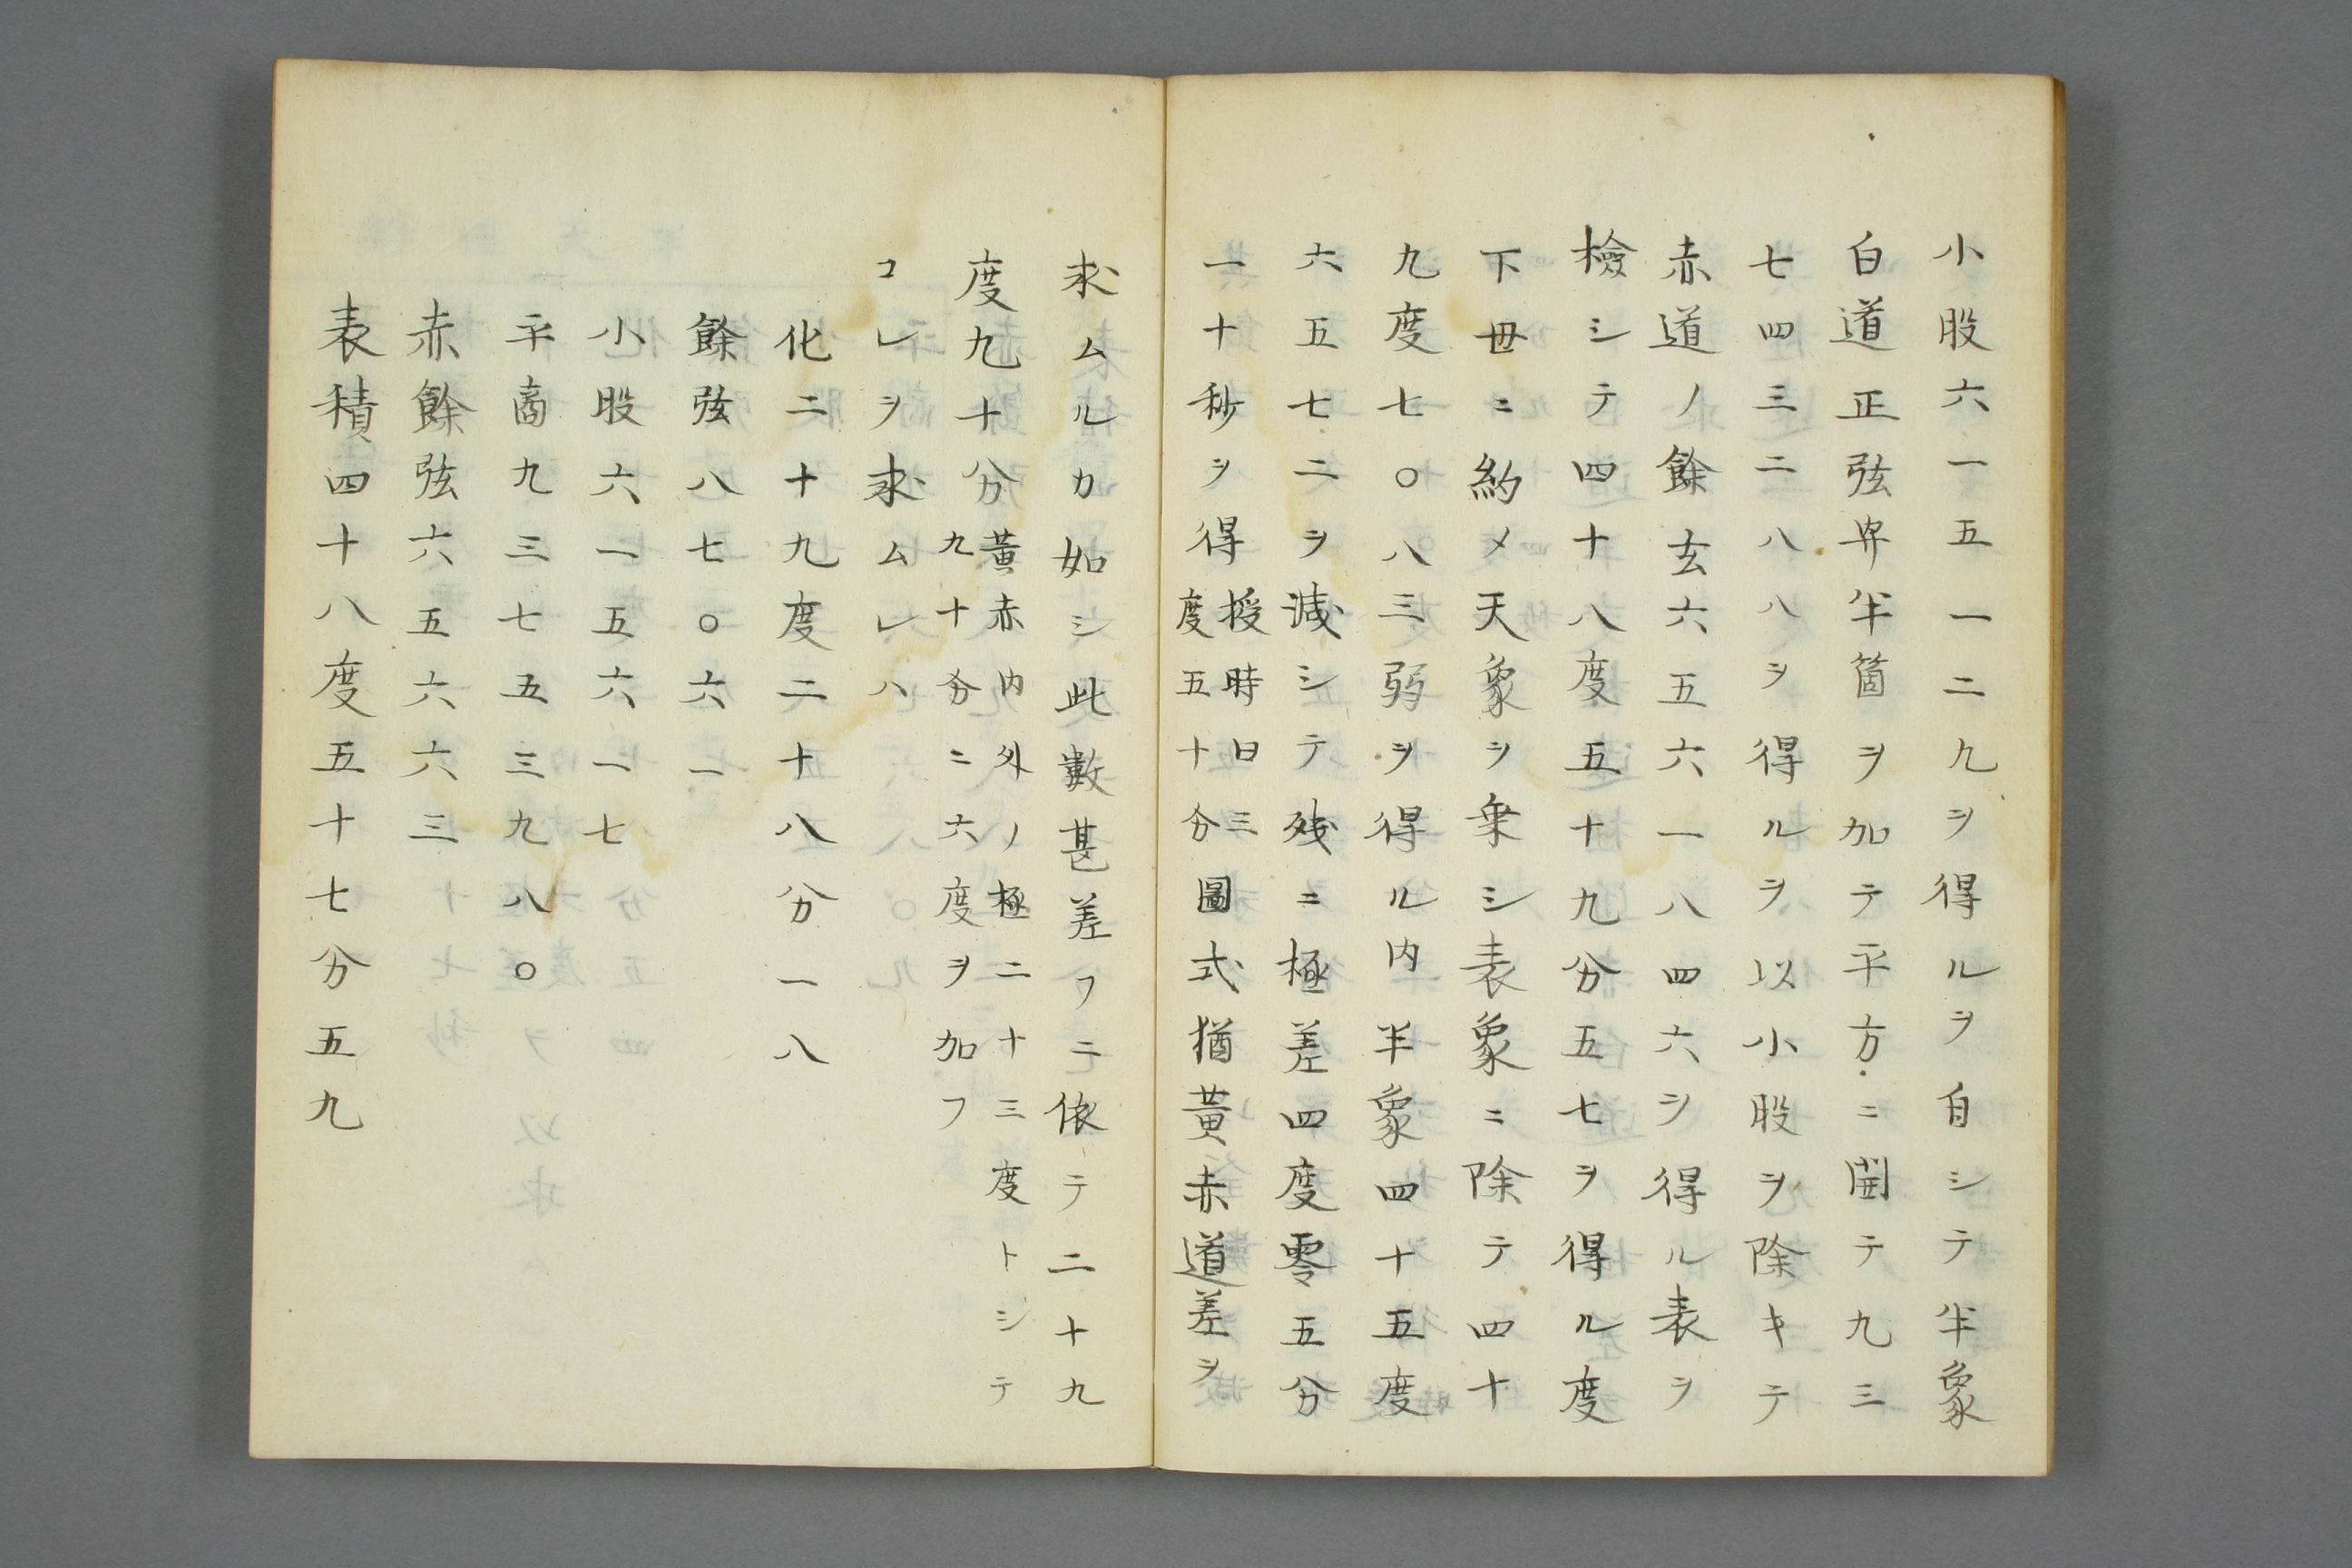 小股六一五一二九ヲ得ルヲ自シテ半象
白道正弦𠦑半箇ヲ加テ平方ニ開テ九三
七四三二八八ヲ得ルヲ以小股ヲ除キテ
赤道ノ餘玄六五六一八四六ヲ得ル表ヲ
檢シテ四十八度五十九分五七ヲ得ル度
下毋ニ約メ天象ヲ乗シ表象ニ除テ四十
九度七〇八三弱ヲ得ル内半象四十五度
六五七二ヲ減シテ残ニ極差四度零五分
一十秒ヲ得授時曰三度五十分圖式猶黃赤道差ヲ
求ムルカ如シ此數甚差フニ依テ二十九
度九十分黃赤内外ノ極二十三度トシテ九十分ニ六度ヲ加フ
コレヲ求ムレハ
化二十九度二十八分一八
餘弦八七〇六一
小股六一五六一七
平啇九三七五三九八〇
赤餘弦六五六六三
表積四十八度五十七分五九